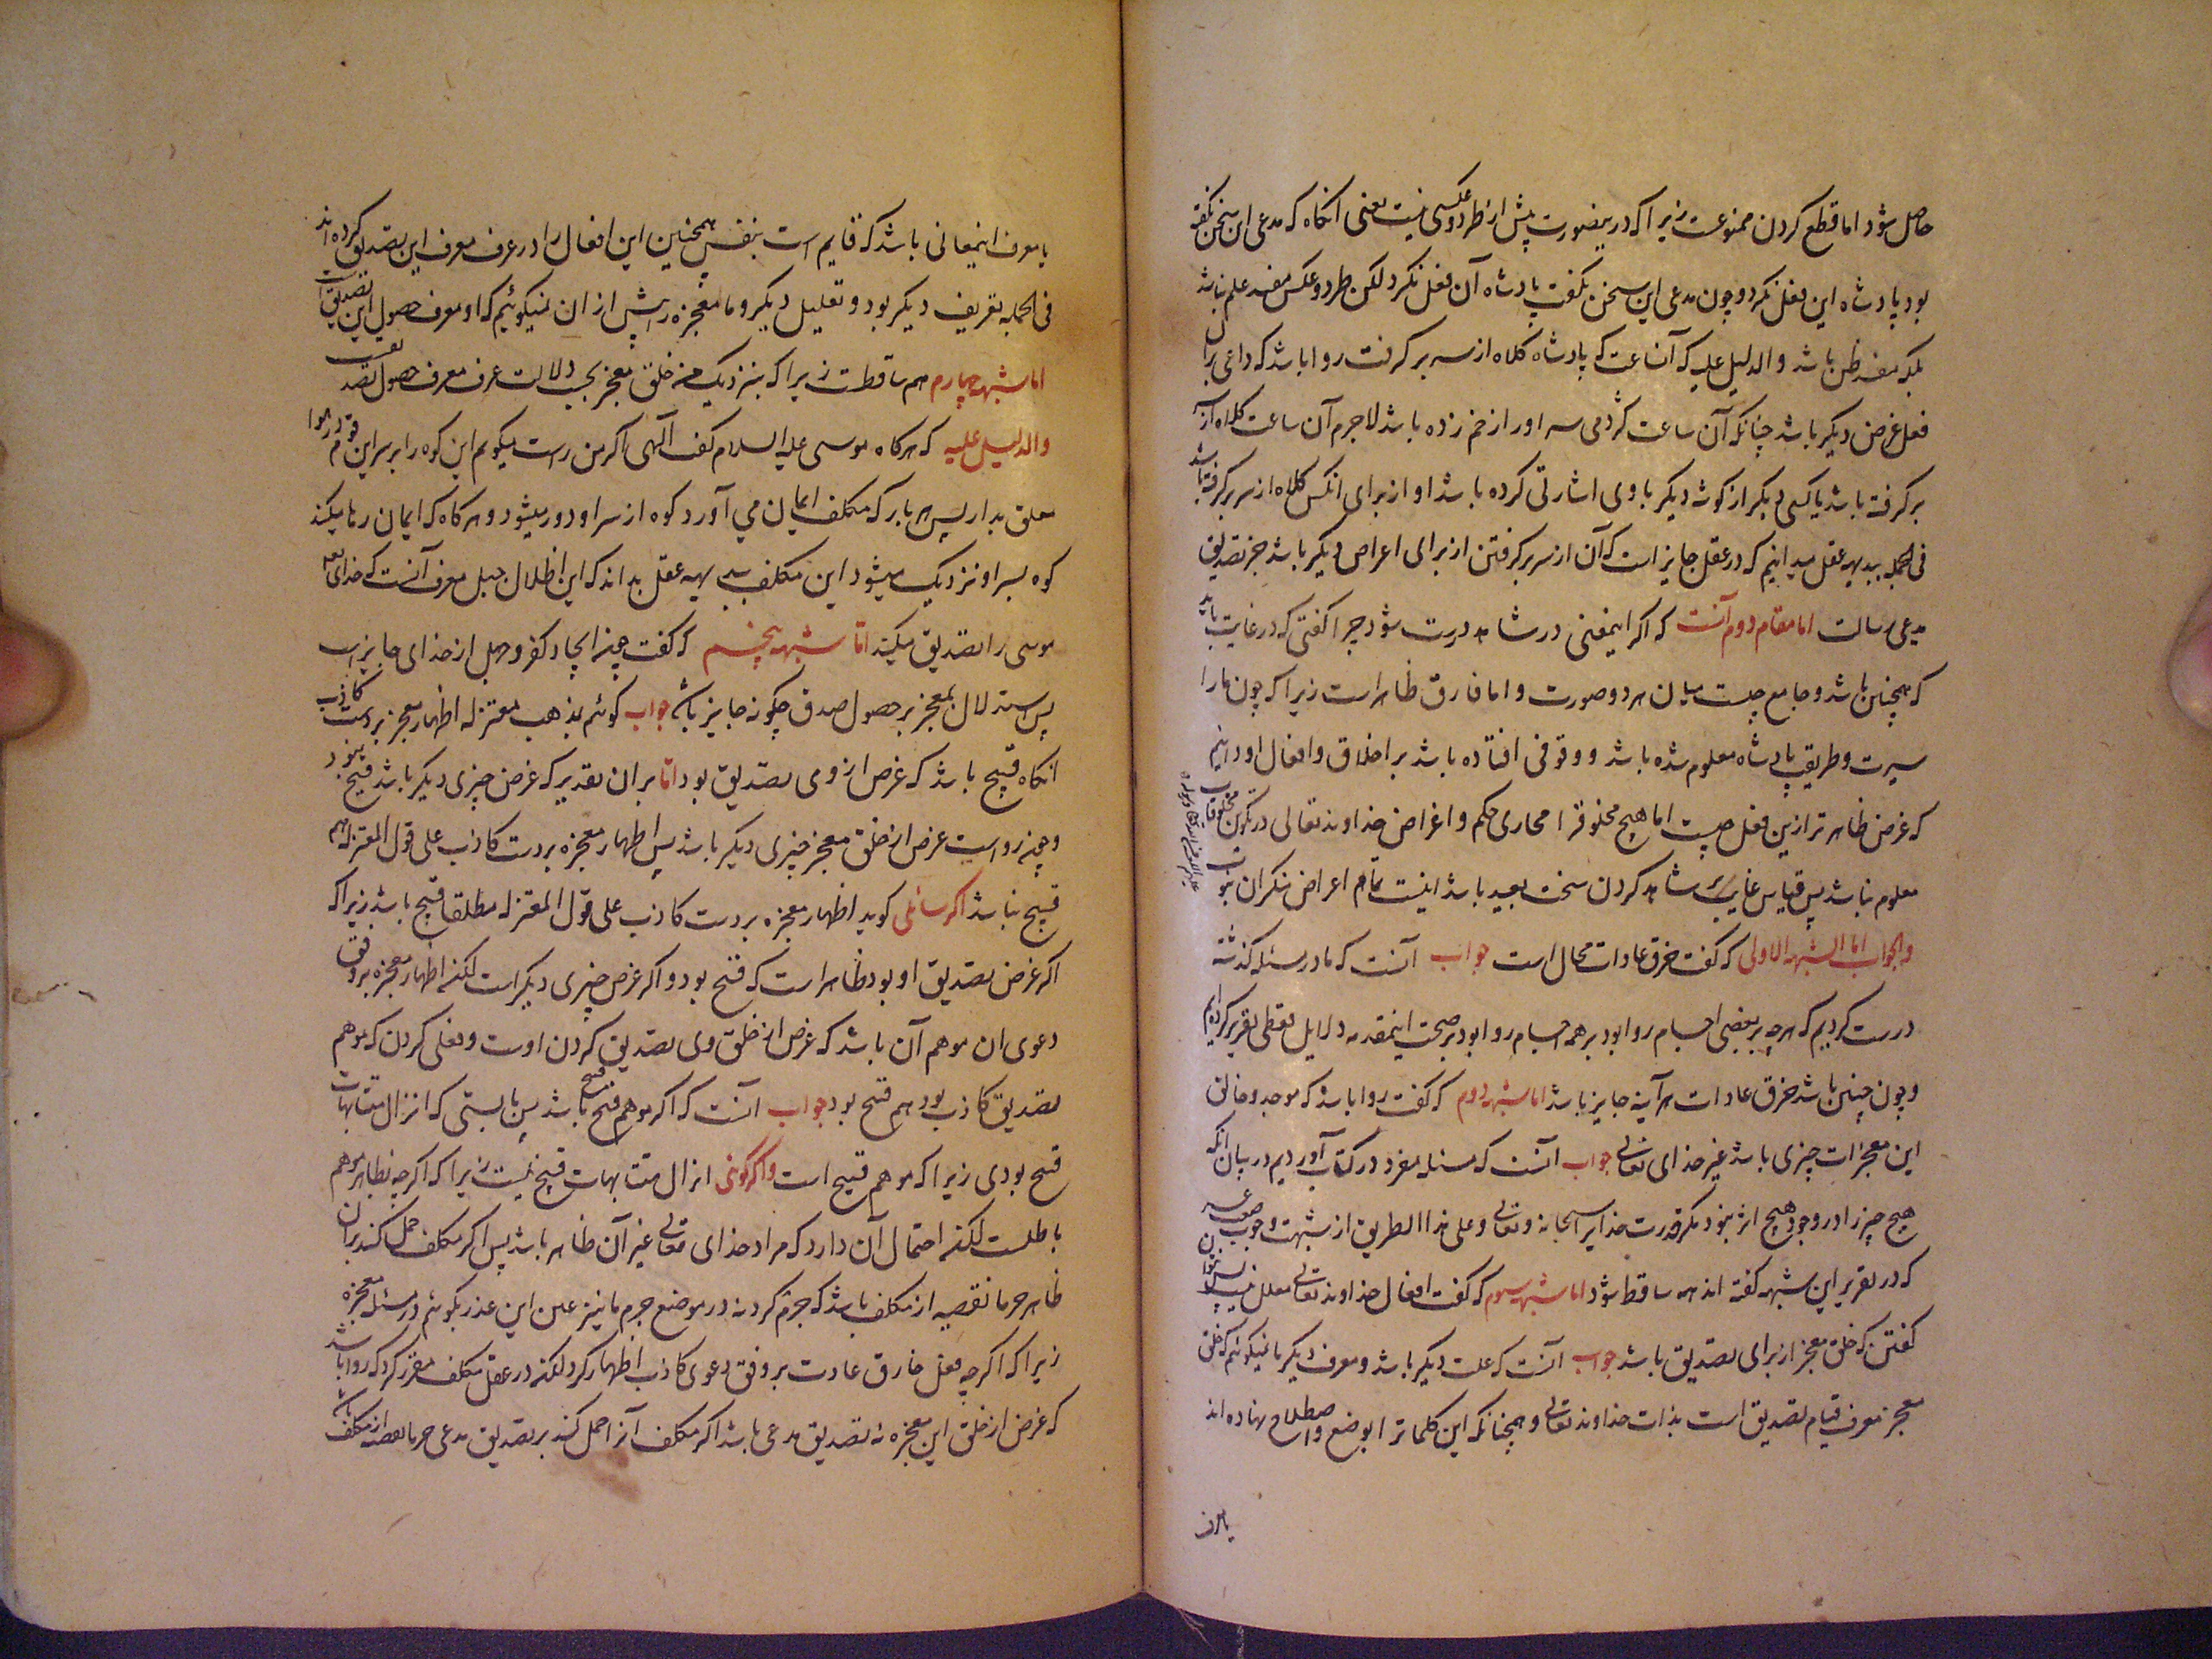 حاصل شود اما قطع کردن ممنوعست زیرا که درین صورت پیش از طرد و عکسی نیست یعنی انکاه که مدعی این سخن نکفته
بود پادشاه این فعل نکرد و چون مدعی این سخن بکفت پادشاه آن فعل بکرد لکن طرد و عکس مفید علم نباشد
بلکه مفید ظن باشد والدلیل علیه که آن ساعت که پادشاه کلاه از سر بر کرفت روا باشد که داعی بر آن
فعل غرض دیکر باشد چنانکه آن ساعت کژدمی سر او را زخم زده باشد لاجرم آن ساعت کلاه از سر
بر کرفته باشد یا کسی دیکر از کوشه دیکر با وی اشارتی کرده باشد او از برای انکس کلاه از سر بر کرفته باشد
فی الجمله ببدیهه عقل میدانیم که در عقل جایز است که آن از سر بر کرفتن از برای اغراض دیکر باشد جز تصدیق
مدعی رسالت اما مقام دوم آنست که اکر اینمعنی در شاهد درست شود چرا کفتی که در غایب باید
که همچنین باشد و جامع چیست میان هر دو صورت و اما فارق ظاهر است زیرا که چون ما را
سیرت و طریقه پادشاه معلوم شده باشد و وقوفی افتاده باشد بر اخلاق و افعال او دانیم
که غرض ظاهرتر ازین فعل چیست اما هیچ مخلوق را مجاری حکم و اغراض خداوند تعالی در تکوین مخلوقات
معلوم نباشد پس قیاس غایب بر شاهد کردن سخت بعید باشد اینست تمام اعراض منکران نبوت
والجواب اما الشبهه الاولی که کفت خرق عادات محال است جواب آنست که ما در مسئله کذشته
درست کردیم که هر چه بر بعضی اجسام روا بود بر همه اجسام روا بود بر صحت اینمقدمه دلایل قطعی تقریر کرده‌ایم
و چون چنین باشد خرق عادات هر آینه جایز باشد اما شبهه دوم که کفت روا باشد که موجد و خالق
این معجزات چیزی باشد غیر خدای تعالی جواب آنست که مسئله مفرد در کتاب آوردیم در بیان آنکه
هیچ چیز را در وجود هیچ اثر نبود مکر قدرت خدایرا سبحانه و تعالی و علی هذا الطریق از شبهت وجوه
که در تقریر این شبهه کفته اند همه ساقط شود اما شبهه سیوم که کفت افعال خداوند تعالی معلل نیست
کفتن که خلق معجز از برای تصدیق باشد جواب آنست که علت دیکر باشد و معرف دیکر ما نمیکوئیم که خلق
معجز معرف قیام تصدیق است بذات خداوند تعالی و همچنانکه این کلمات را بوضع و اصطلاح نهاده اند
یا معرف
یا معرف اینمعانی باشد که قایم است بنفس همچنین این افعال را در عرف معرف این تصدیق کرده اند
فی الجمله تعریف دیکر بود و تعلیل دیکر و ما معجزه را پیش از ان نمیکوئیم که او معرف حصول این تصدیق است
اما شبهه چهارم هم ساقطست زیرا که بنزدیک خلق معجز بحسب دلالت عرف معرف حصول تصدیق
والدلیل علیه که هرکاه موسی علیه السلام کفت الهی اکر من راست میکویم این کوه را بر سر این قوم در هوا
معلق بدار پس هر بار که مکلف ایمان می آورد کوه از سر او دور میشود و هرکاه که ایمان رها میکند
کوه بسر او نزدیک میشود این مکلف ببدیهه عقل بداند که این اظلال جبل معرف آنست که خدای تعالی
موسی را تصدیق میکند اما شبهه پنجم که کفت چون ایجاد کفر و جهل از خدای جایز است
پس استدلال بمعجز بر حصول صدق چکونه جایز باشد جواب کوئیم بمذهب معتزله اظهار معجز بر دست کاذب
انکاه قبیح باشد که غرض از وی تصدیق بود اما بر ان تقدیر که غرض چیزی دیکر باشد قبیح نبود
و چون رواست غرض از خلق معجز چیزی دیکر باشد پس اظهار معجزه بر دست کاذب علی قول المعتزله هم
قبیح نباشد اکر سائلی کوید اظهار معجزه بر دست کاذب علی قول المعتزله مطلقا قبیح باشد زیرا که
اکر غرض تصدیق او بود ظاهر است که قبیح بود و اکر غرض چیزی دیکر است لکن اظهار معجزه بر وفق
دعوی ان موهم آن باشد که غرض از خلق وی تصدیق کردن اوست و فعلی کردن که موهم
تصدیق کاذب بود هم قبیح بود جواب آنست که اکر موهم قبیح قبیح باشد پس بایستی که انزال متشابهات
قبیح بودی زیرا که موهم قبیح است و اکر کوئی انزال متشابهات قبیح نیست زیرا که اکرچه بظاهر موهم
باطلست لکن احتمال آن دارد که مراد خدای تعالی غیر آن ظاهر باشد پس اکر مکلف حمل کند بر ان
ظاهر جرما تقصیر از مکلف باشد که جزم کرد نه در موضع جزم ما نیز عین این عذر بکوئیم در مسئله معجزه
زیرا که اکرچه فعل خارق عادت بر وفق دعوی کاذب اظهار کرد لکن در عقل مکلف مقرر کرد که روا باشد
که غرض از خلق این معجزه نه تصدیق مدعی باشد اکر مکلف آنرا حمل کند بر تصدیق مدعی جرما تقصیر از مکلف باشد